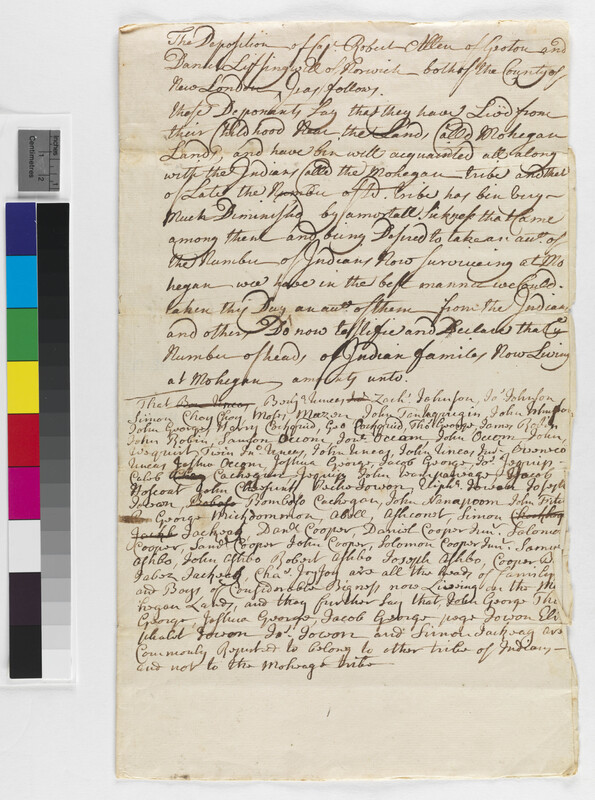 The Deposition of Capt Robert Allen of Groton and
Daniel Lyffingwell of Norwich both of the County of
New London is as follows.
these Deponants Say that they have Livd from
their Childhood Near the Lands Calld Mohegan
Lands, and have bin well acquainted all along
with the Indians Calld the Mohegan tribe and that
of Late the Number of sd. tribe has bin very
Much Diminished by a mortall Sickness that Came
among them and being Desired to take an acct. of
the Number of Indians Now surviveing at Mo
hegan wee have in the best manner we Could
taken this Day an acct. of them from the Indians
and others Do now testifie and Declare that ye
Number of heads of Indian familes Now Living
at Mohegan amounts unto.
That Benj Uncas Zachy Johnson, Jos Johnson
Simon Choy Choy, Moses Mazen John Tantaquigin, John Johnson
John George, Henry Cochquid, Geo Cochquid, Tho George, James Robin
John Robin, Samson Occom, Jont. Occom John Occom John,
Wequirt Twin Jno. Uncas, John Uncas, John Uncas Junr. Oweneco
Uncas Joshua Occom, Joshua George, Jacob George, Jos. Jequip
Caleb Cachegan, Jequip John
Noscoat John Cheepunt Peche Jowon Eliphlt Jowon Joseph
Jowon, Bombofo Cachegan, John Nanapoom John
George Dickdommon Abell, Ashconet, Simon
Jacheag, Danl Cooper, Daniel Cooper Junr. Solomo
Cooper, Saml Cooper John Cooper, Solomon Cooper Junr. Samuel
Ashbo, John Ashbo Robert Ashbo Joseph Ashbo, Cooper
Jabez Jacheag, are all the heads of family
and Boys of Considerable Bigness now Liveing on the Mo
hegan Lands, and they further Say that, John George Tho
George, Joshua George, Jacob George, Jowon Eli
phalit Jowon Jos. Jowon and Simon Jacheag are
Commonly Reputed to belong to other tribe of Indians
and not to the Moheage tribe